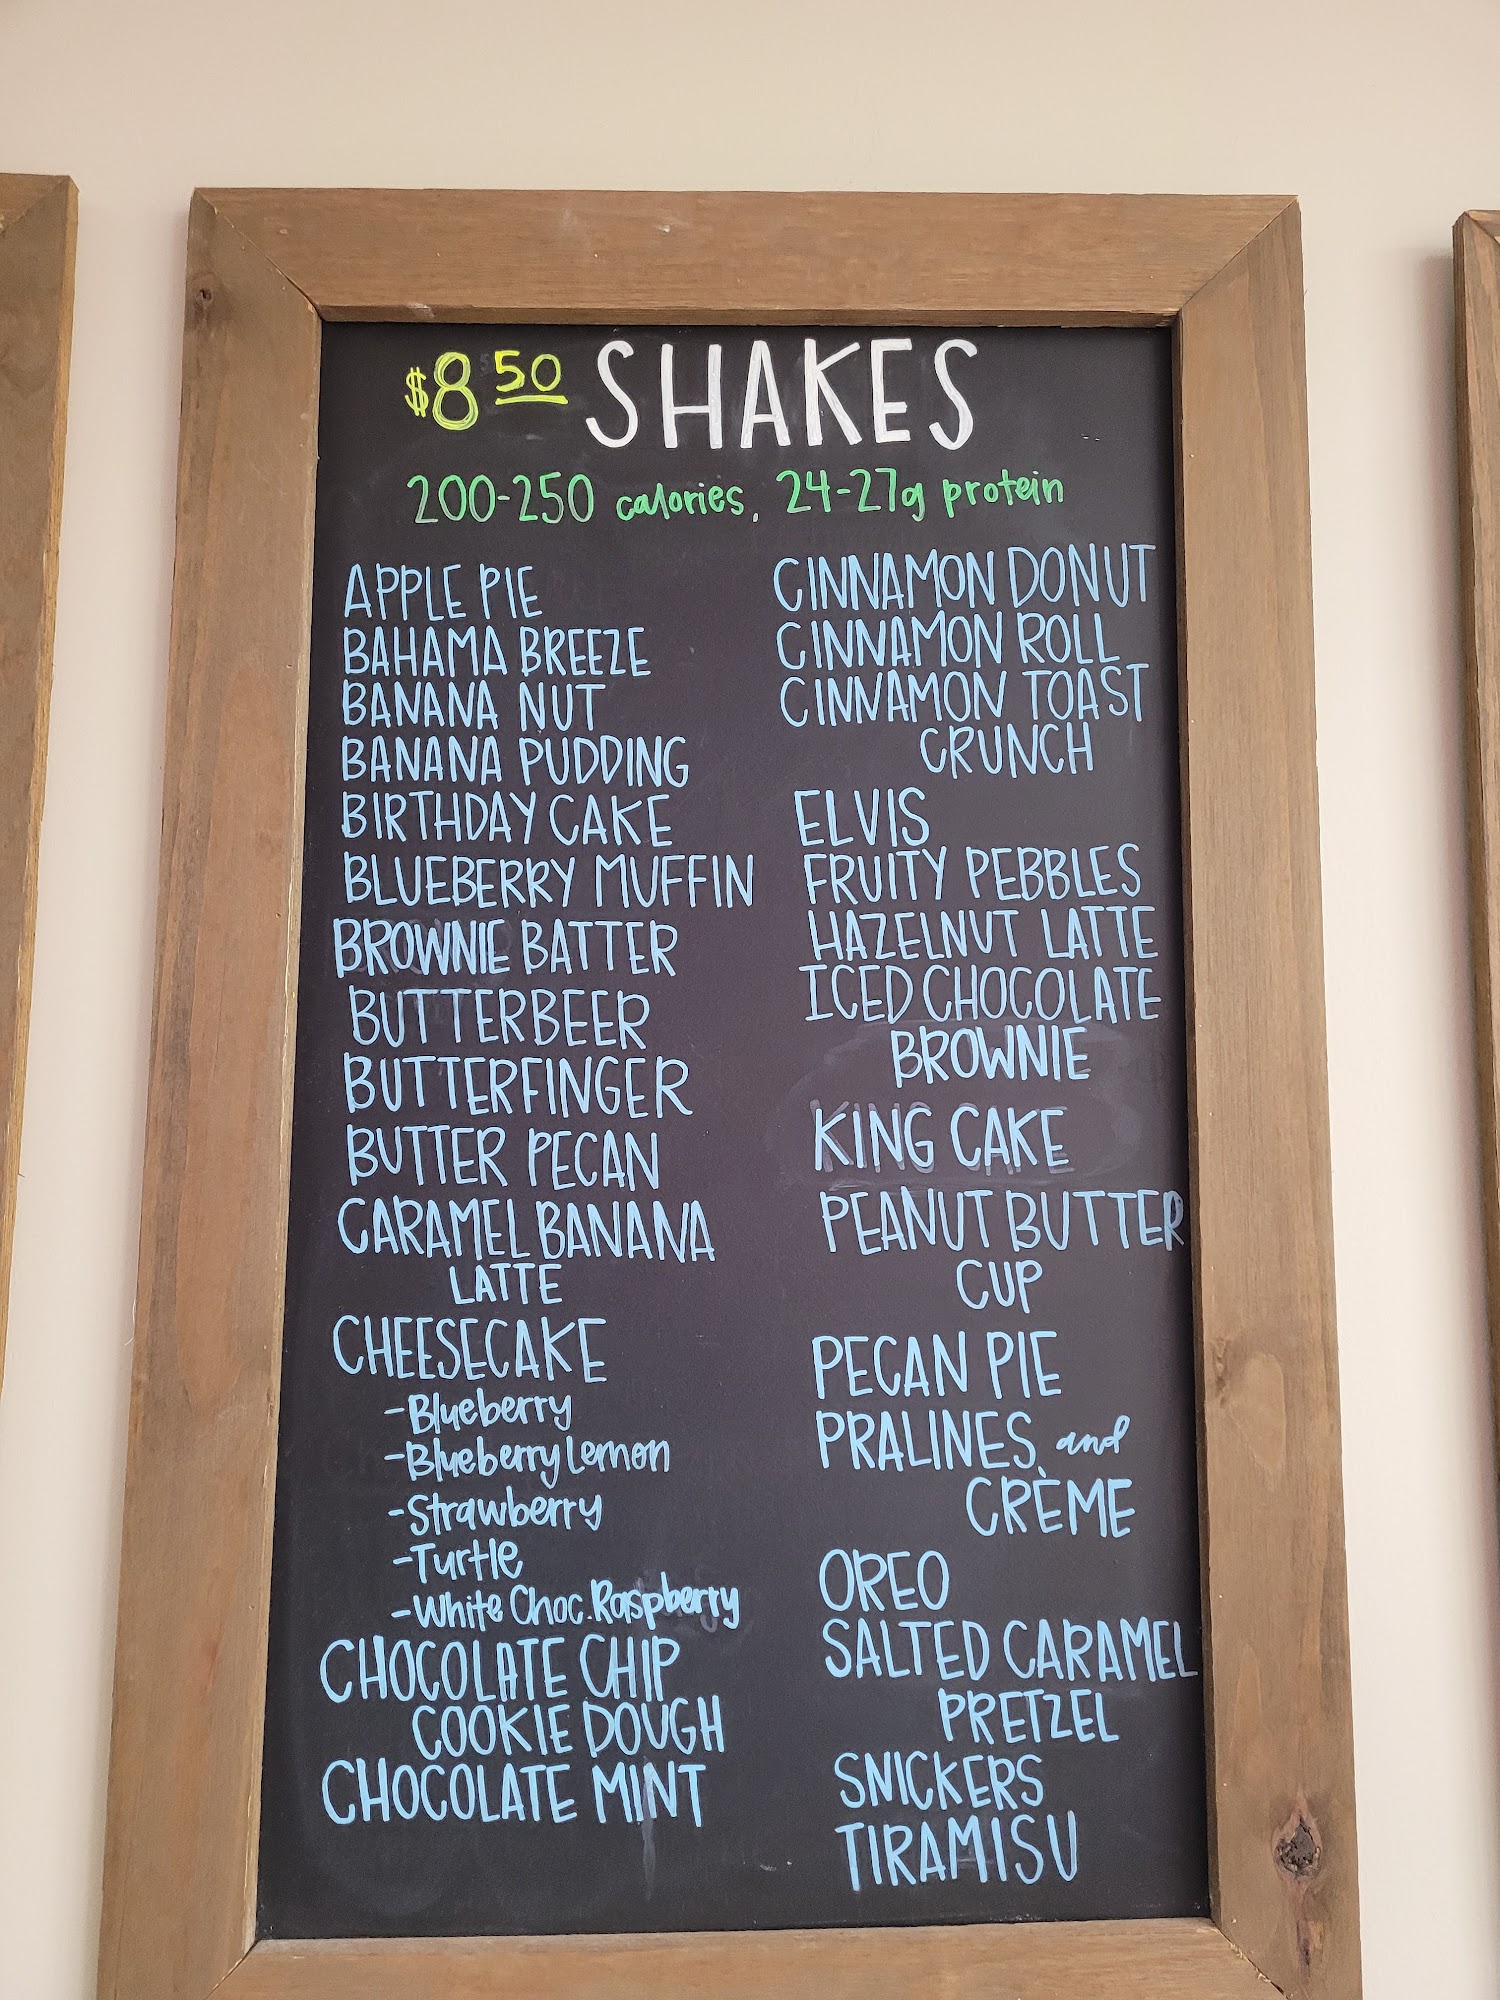 $8.50 SHAKES
200-250 calories, 24-27g protein
APPLE PIE
BAHAMA BREEZE
BANANA NUT
BANANA PUDDING
BIRTHDAY CAKE
BLUEBERRY MUFFIN
BROWNIE BATTER
BUTTERBEER
BUTTERFINGER
BUTTER PECAN
CARAMEL BANANA
LATTE
CHEESECAKE
-Blueberry
-Blueberry Lemon
-Strawberry
-Turtle
-White Choc. Raspberry
CHOCOLATE CHIP
COOKIE DOUGH
CHOCOLATE MINT
CINNAMON DONUT
CINNAMON ROLL
CINNAMON TOAST
CRUNCH
ELVIS
FRUITY PEBBLES
HAZELNUT LATTE
ICED CHOCOLATE
BROWNIE
KING CAKE
PEANUT BUTTER
CUP
PECAN PIE
PRALINES and
CRÈME
OREO
SALTED CARAMEL
PRETZEL
SNICKERS
TIRAMISU